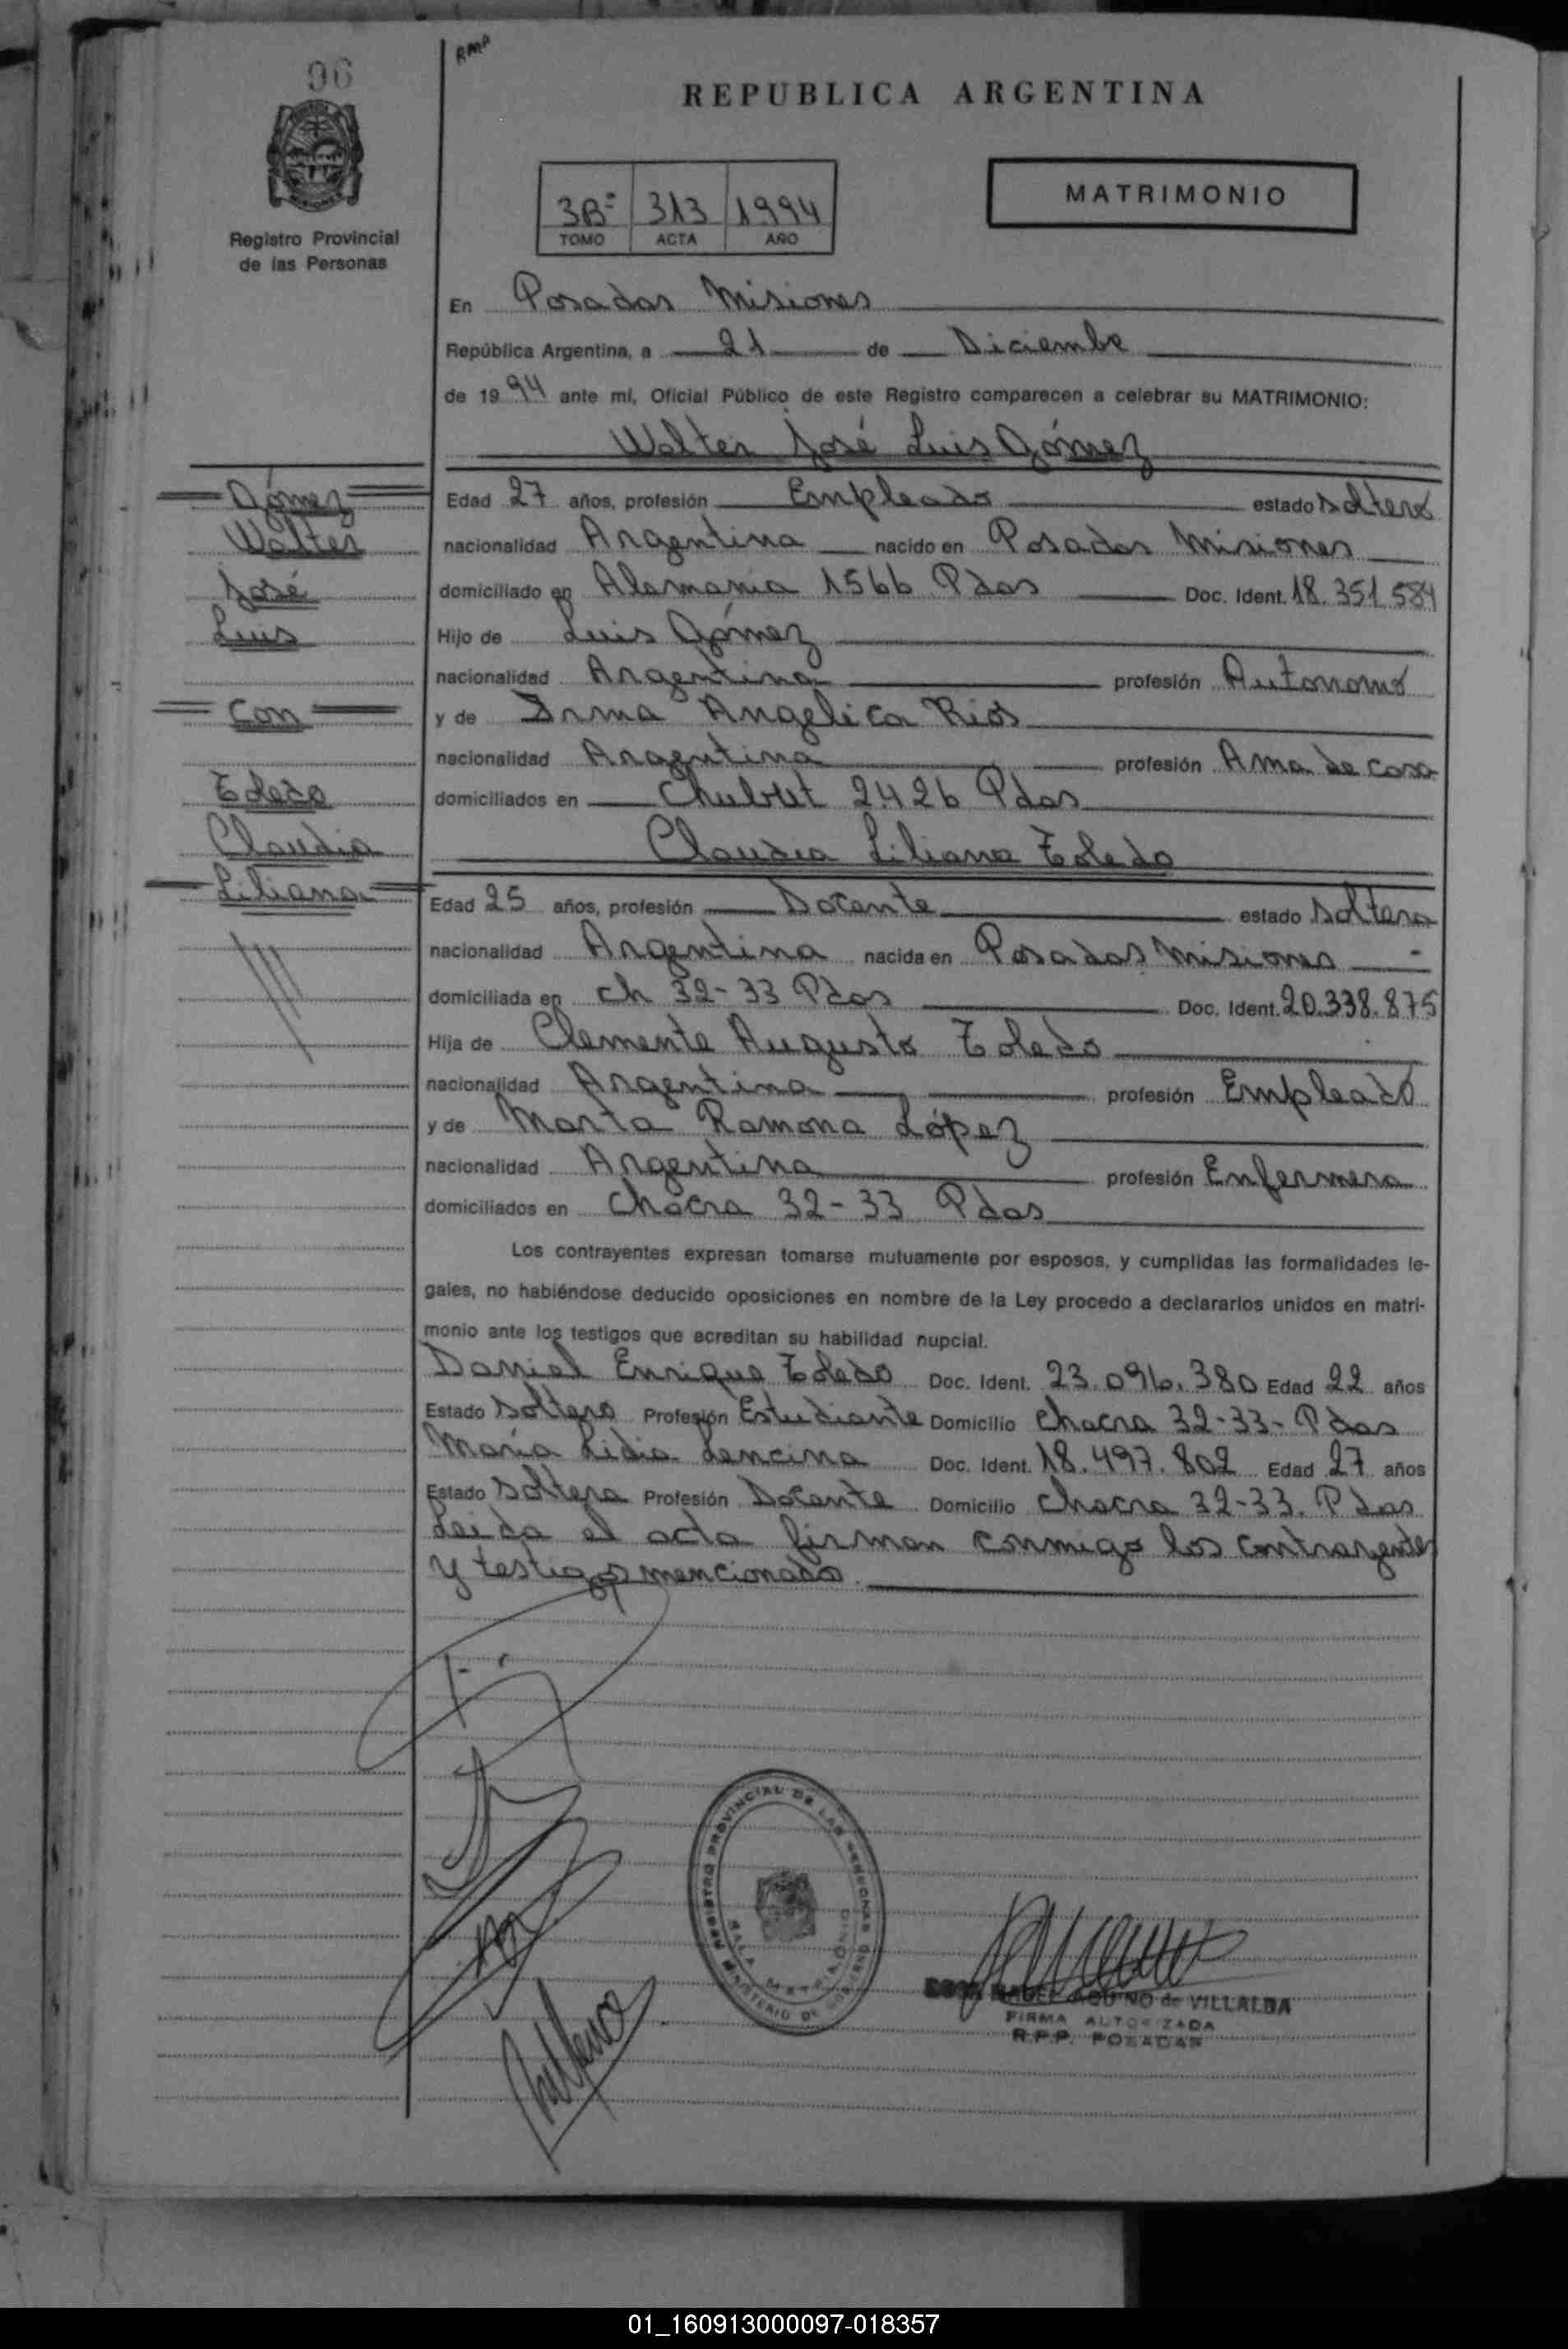 96
RMP
REPUBLICA ARGENTINA
Registro Provincial
de las Personas
3Bº 313 1994
TOMO ACTA AÑO
MATRIMONIO
En Posadas Misiones
República Argentina, a 21 de Diciembre
de 1994 ante mí, Oficial Público de este Registro comparecen a celebrar su MATRIMONIO:
Walter José Luis Gómez
Gómez
Walter
José
Luis
Con
Toledo
Claudia
Liliana
Edad 27 años, profesión Empleado estado soltero
nacionalidad Argentina nacido en Posadas Misiones
domiciliado en Alemania 1566 Pdas Doc. Ident. 18.351.584
Hijo de Luis Gómez
nacionalidad Argentina profesión Autonomo
y de Irma Angelica Rios
nacionalidad Argentina profesión Ama de casa
domiciliados en Chubut 2426 Pdas
Claudia Liliana Toledo
Edad 25 años, profesión Docente estado soltera
nacionalidad Argentina nacida en Posadas Misiones
domiciliada en ch 32-33 Pdas Doc. Ident. 20.338.875
Hija de Clemente Augusto Toledo
nacionalidad Argentina profesión Empleado
y de Marta Ramona López
nacionalidad Argentina profesión Enfermera
domiciliados en chacra 32-33 Pdas
Los contrayentes expresan tomarse mutuamente por esposos, y cumplidas las formalidades le-
gales, no habiéndose deducido oposiciones en nombre de la Ley procedo a declararlos unidos en matri-
monio ante los testigos que acreditan su habilidad nupcial.
Daniel Enrique Toledo Doc. Ident. 23.096.380 Edad 22 años
Estado soltero Profesión Estudiante Domicilio chacra 32-33- Pdas
María Lidia Lencina Doc. Ident. 18.497.802 Edad 27 años
Estado soltera Profesión Docente Domicilio chacra 32-33. Pdas
Leida el acta firman conmigo los contrayentes
y testigos mencionados.
REGISTRO PROVINCIAL DE LAS PERSONAS
SALA MATRIMONIO
MINISTERIO DE GOBIERNO
AQUINO de VILLALBA
FIRMA AUTORIZADA
R.P.P. POSADAS
01_160913000097-018357